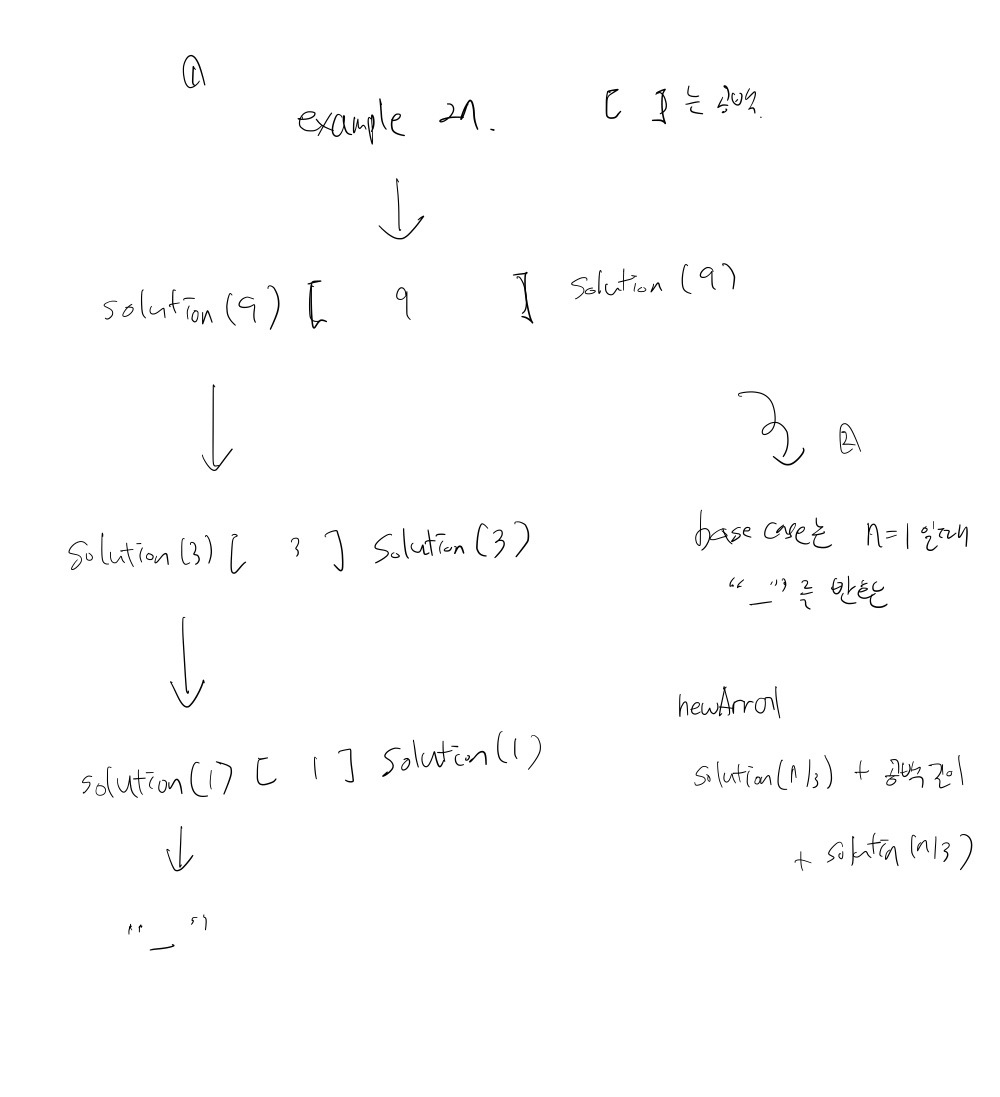 ①
example 27. [ ]는 공백.
solution(9) [ 9 ] solution(9)
solution(3) [ 3 ] solution(3)
solution(1) [ 1 ] solution(1)
"_"
②
base case는 n=1 일때
"_"를 반환
newArray
solution(n/3) + 공백길이
+ solution(n/3)